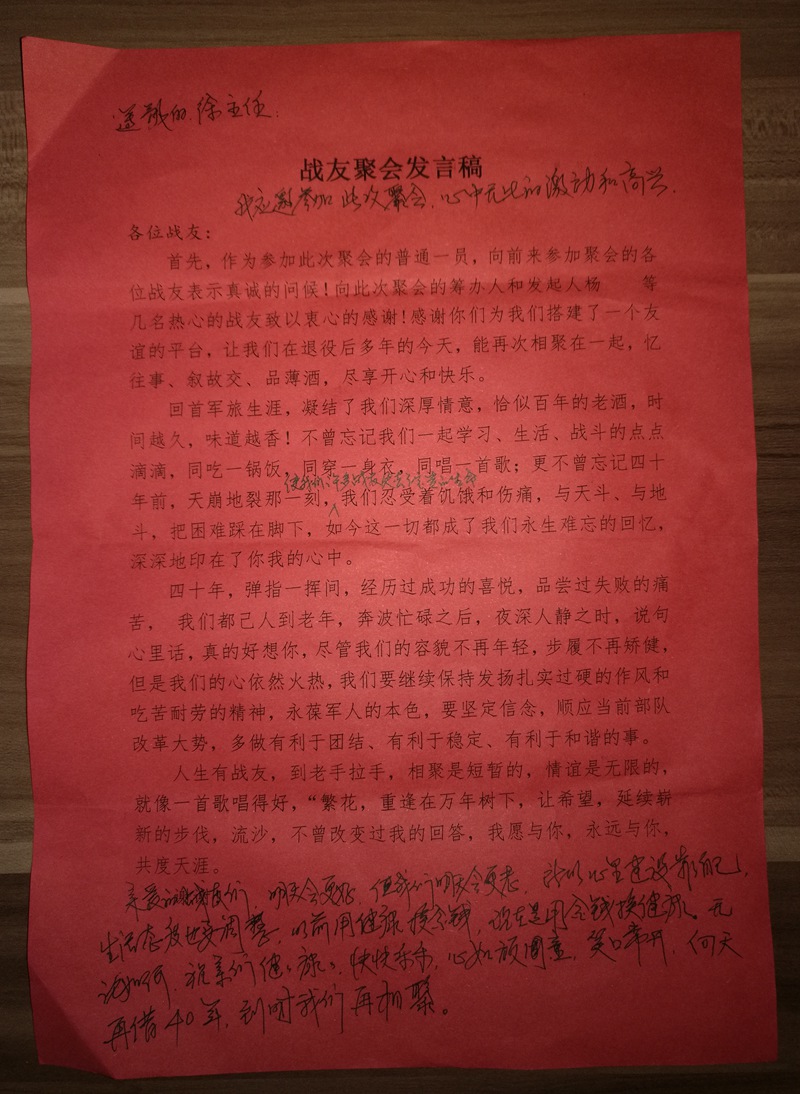 尊敬的徐主任:
战友聚会发言稿
我应邀参加此次聚会、心中无比的激动和高兴.
各位战友：
首先，作为参加此次聚会的普通一员，向前来参加聚会的各
位战友表示真诚的问候！向此次聚会的筹办人和发起人杨 等
几名热心的战友致以衷心的感谢！感谢你们为我们搭建了一个友
谊的平台，让我们在退役后多年的今天，能再次相聚在一起，忆
往事、叙故交、品薄酒，尽享开心和快乐。
回首军旅生涯，凝结了我们深厚情意，恰似百年的老酒，时
间越久，味道越香！不曾忘记我们一起学习、生活、战斗的点点
滴滴，同吃一锅饭，同穿一身衣，同唱一首歌；更不曾忘记四十
使我们许多战友失去了宝贵的生命
年前，天崩地裂那一刻，我们忍受着饥饿和伤痛，与天斗、与地
斗，把困难踩在脚下，如今这一切都成了我们永生难忘的回忆，
深深地印在了你我的心中。
四十年，弹指一挥间，经历过成功的喜悦，品尝过失败的痛
苦， 我们都己人到老年，奔波忙碌之后，夜深人静之时，说句
心里话，真的好想你，尽管我们的容貌不再年轻，步履不再矫健，
但是我们的心依然火热，我们要继续保持发扬扎实过硬的作风和
吃苦耐劳的精神，永葆军人的本色，要坚定信念，顺应当前部队
改革大势，多做有利于团结、有利于稳定、有利于和谐的事。
人生有战友，到老手拉手，相聚是短暂的，情谊是无限的，
就像一首歌唱得好，“繁花，重逢在万年树下，让希望，延续崭
新的步伐，流沙，不曾改变过我的回答，我愿与你，永远与你，
共度天涯。
亲爱的战友们，明天会更好，但我们明天会更老，所以心里建设靠自己，
生活态度也要调整，以前用健康换金钱，现在是用金钱换健康。无
论如何，祝亲们健健康康、快快乐乐，心如顽童，笑口常开，向天
再借40年，到时我们再相聚。